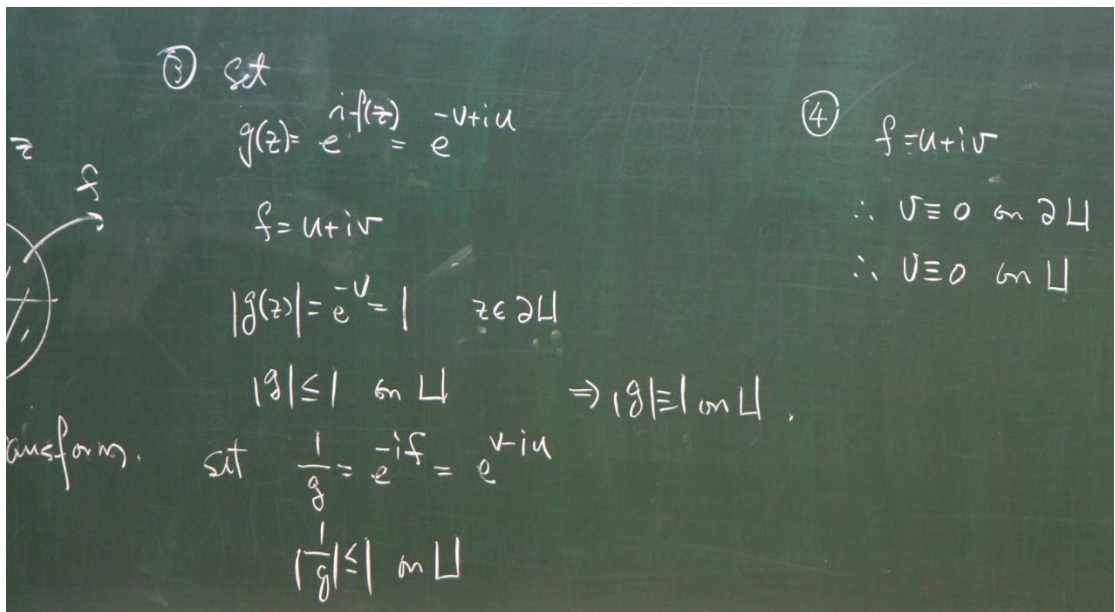 z
f
ansform.
③ Set
g(z) = e^{if(z)} = e^{-v+iu}
f = u+iv
|g(z)| = e^{-v} = 1 z ∈ ∂⊔
|g| ≤ 1 on ⊔ ⇒ |g| ≡ 1 on ⊔.
set 1/g = e^{-if} = e^{v-iu}
|1/g| ≤ 1 on ⊔
④ f = u+iv
∴ v ≡ 0 on ∂⊔
∴ v ≡ 0 on ⊔